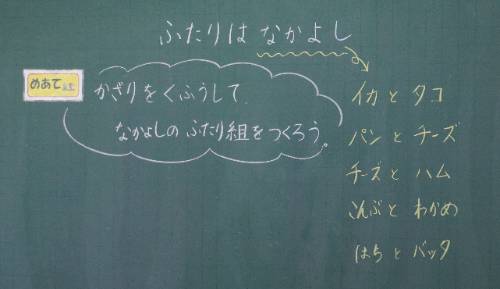 ふたりは なかよし
めあて
かざりをくふうして、
なかよしの ふたり組をつくろう。
イカとタコ
パンとチーズ
チーズとハム
こんぶと わかめ
はちとバッタ